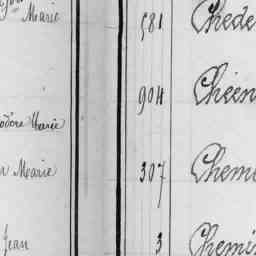 Marie
581 Chede
904 Chéen
Marie
Marie
307 Chemi
Jean
3 Chemi